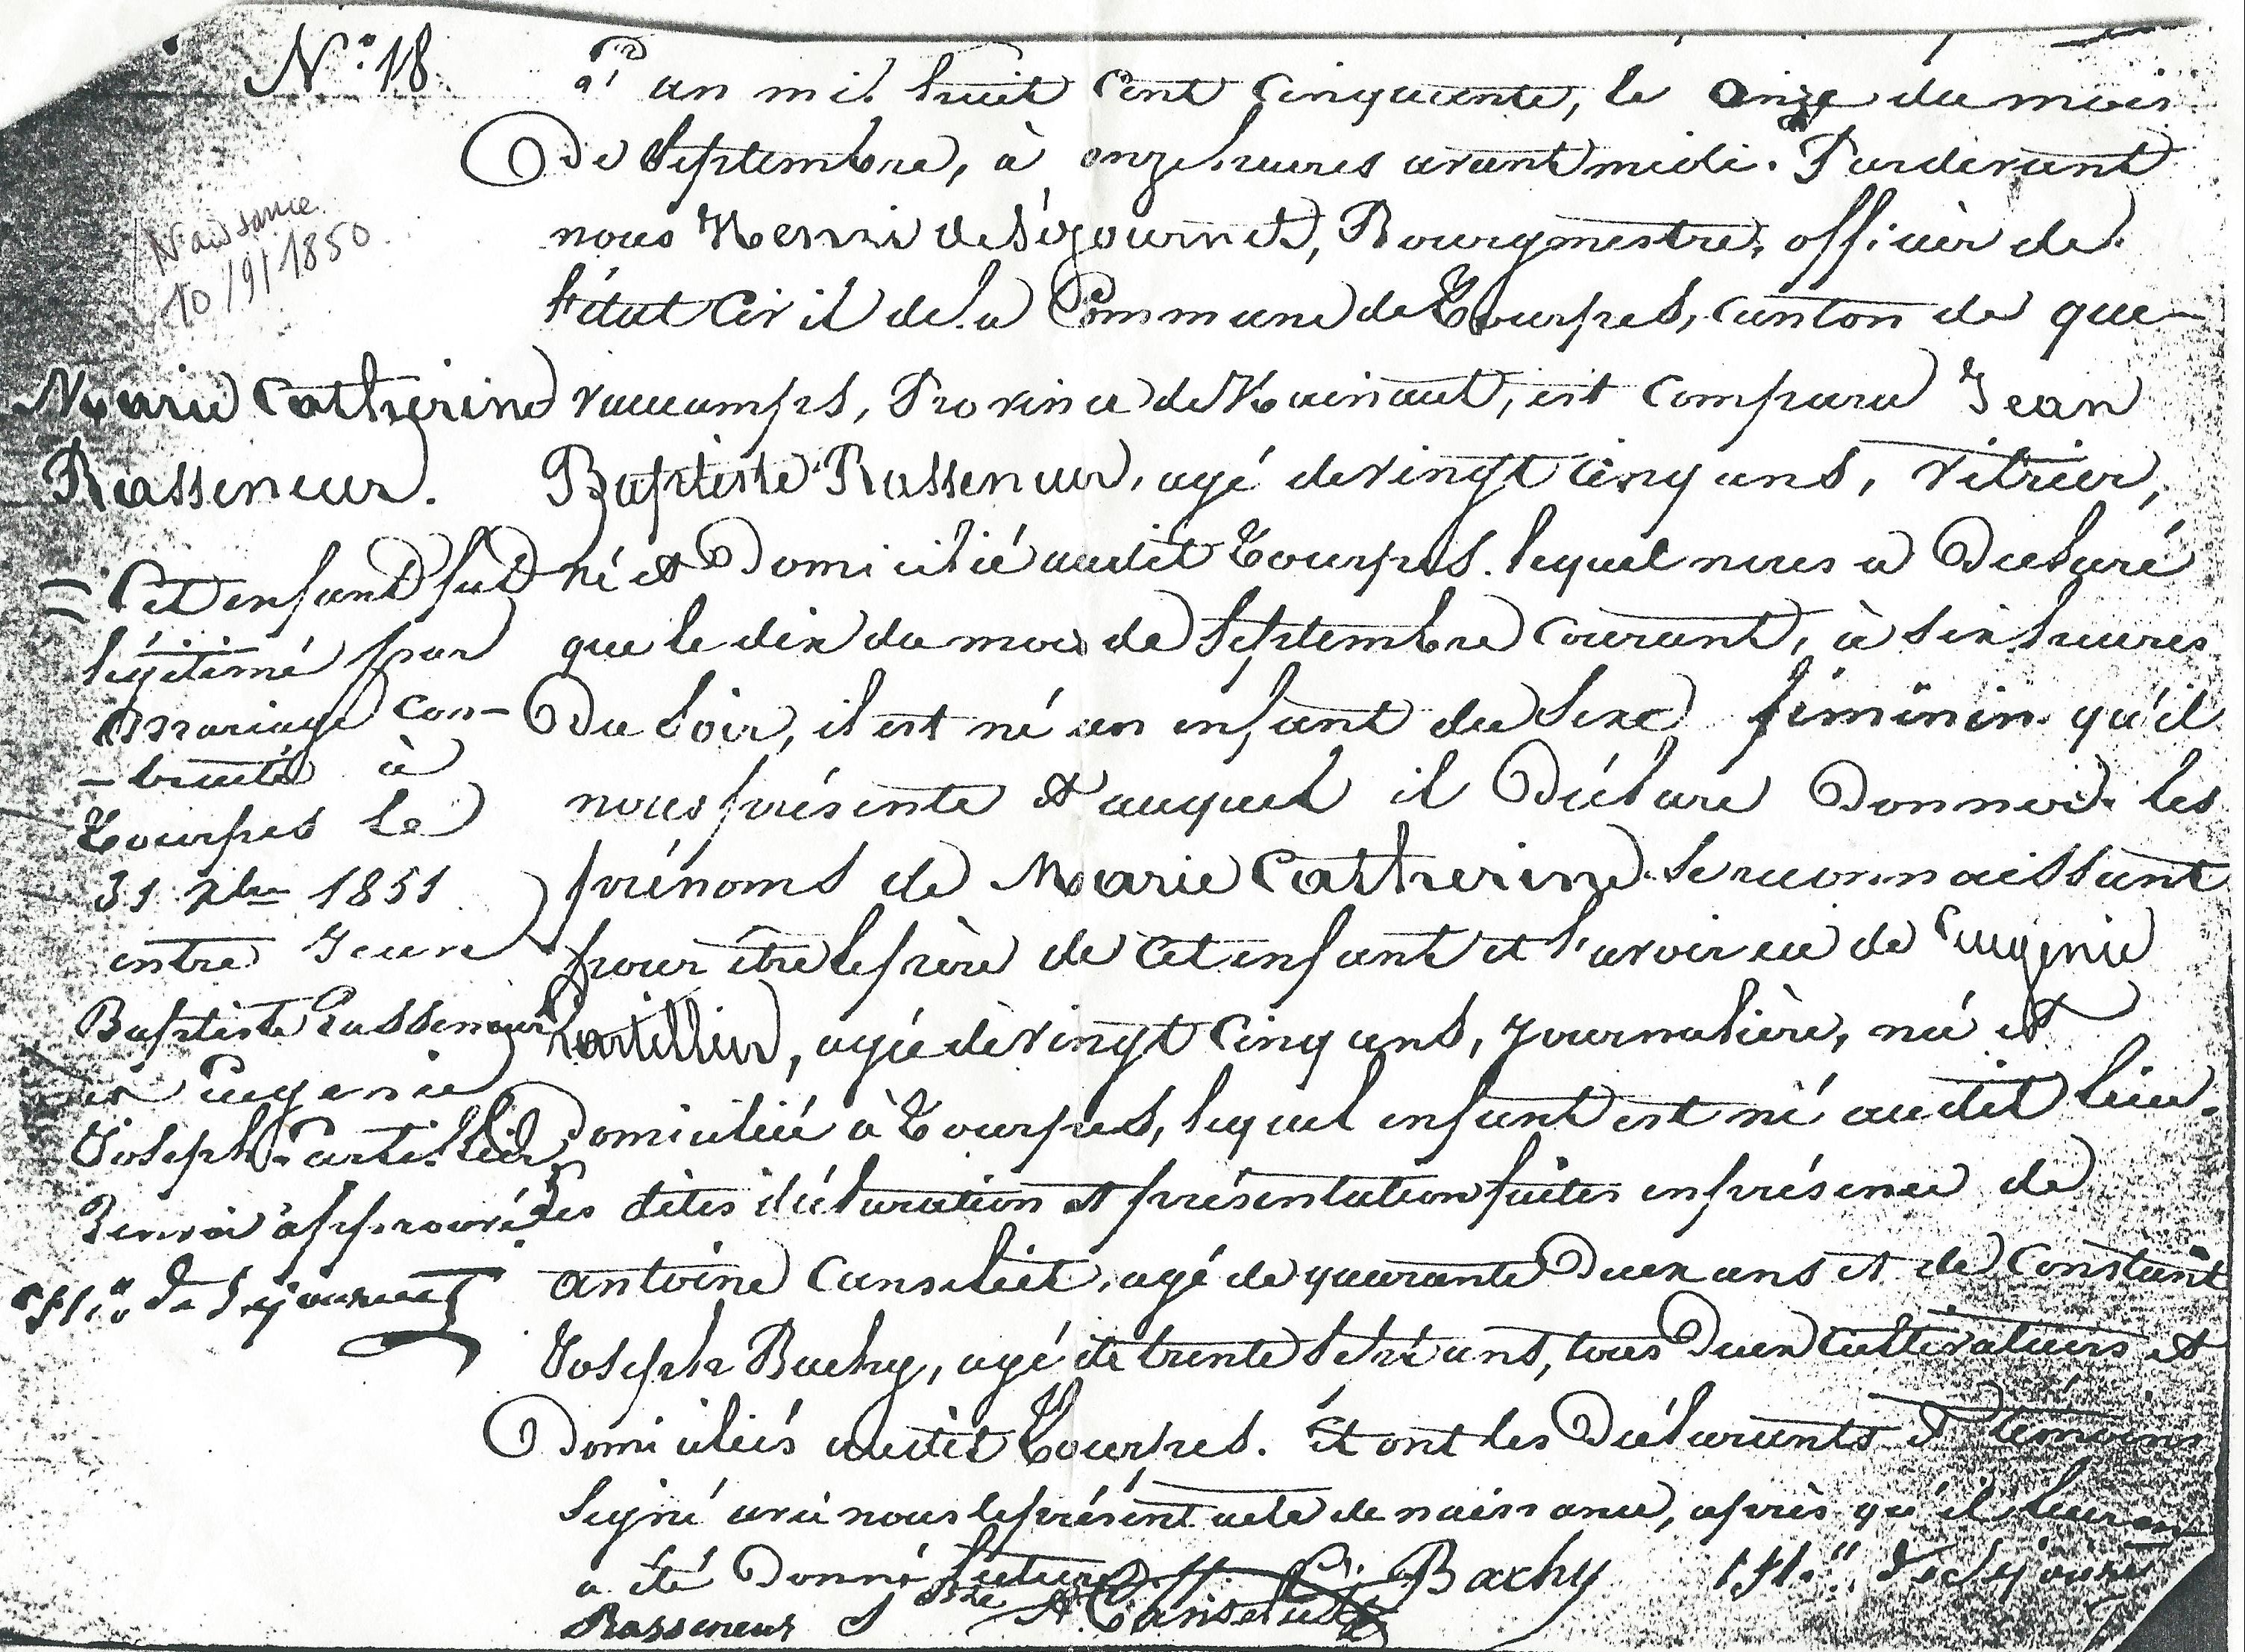 N.° 18
L'an mil huit cent cinquante, le onze du mois
de Septembre, à onze heures avant midi. Pardevant
nous Henri deSéjournet, Bourgmestre, officier de
l'état Civil de la Commune de Tourpes, canton de que-
vaucamps, Province de Hainaut, est comparu Jean
Baptiste Rasseneur, agé de vingt cinq ans, vitrier,
né et Domicilié audit Tourpes. lequel nous a Déclaré
que le dix du mois de Septembre courant, à six heures
Du Soir, il est né un enfant du Sexe féminin qu'il
nous présente et auquel il Déclare Donner les
prénoms de Marie Catherine. Se reconnaissant
pour être le père de cet enfant et l'avoir eu de Eugénie
Cartillier, agée de vingt cinq ans, Journalière, née et
Domiciliée à Tourpes, lequel enfant est né audit lieu.
Les dites déclaration et présentation faites en présence de
Antoine Canseliet, agé de quarante Deux ans et de Constant
Joseph Bachy, agé de trente ans, tous Deux cultivateurs et
Domiciliés audit Tourpes. Et ont les Déclarants et témoins
Signé avec nous le présent acte de naissance, après qu'il leur en
a été Donné lecture
Rasseneur J Bte A Canseliet C. J. Bachy Hri de Séjournet
Naissance
10/9/1850
Marie Catherine
Rasseneur.
= Cet enfant fut
légitimé par
mariage con-
-tracté à
Tourpes le
31 Xbre 1851
entre Jean
Baptiste Rasseneur
et Eugénie
Joseph Cartillier
Renvoi approuvé
Hri de Séjournet